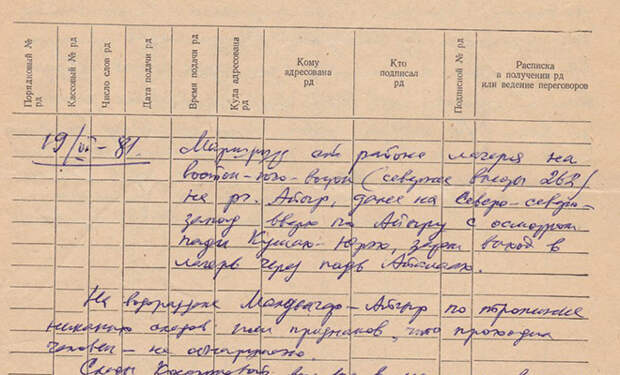 Порядковый № рд
Кассовый № рд
Число слов рд
Дата подачи рд
Время подачи рд
Куда адресована рд
Кому адресована рд
Кто подписал рд
Подписной № рд
Расписка в получении рд или ведение переговоров
19/VI-81. Маршрут от района лагеря на
восток-юго-восток (севернее 262)
на р. Айыр, далее на Северо-северо-
запад вверх по Айыру с осмотром
пади затем выход в
лагерь через падь
На водоразделе -Айыр по тропинке
никаких следов или признаков, что проходил
человек - не обнаружено.
Следы